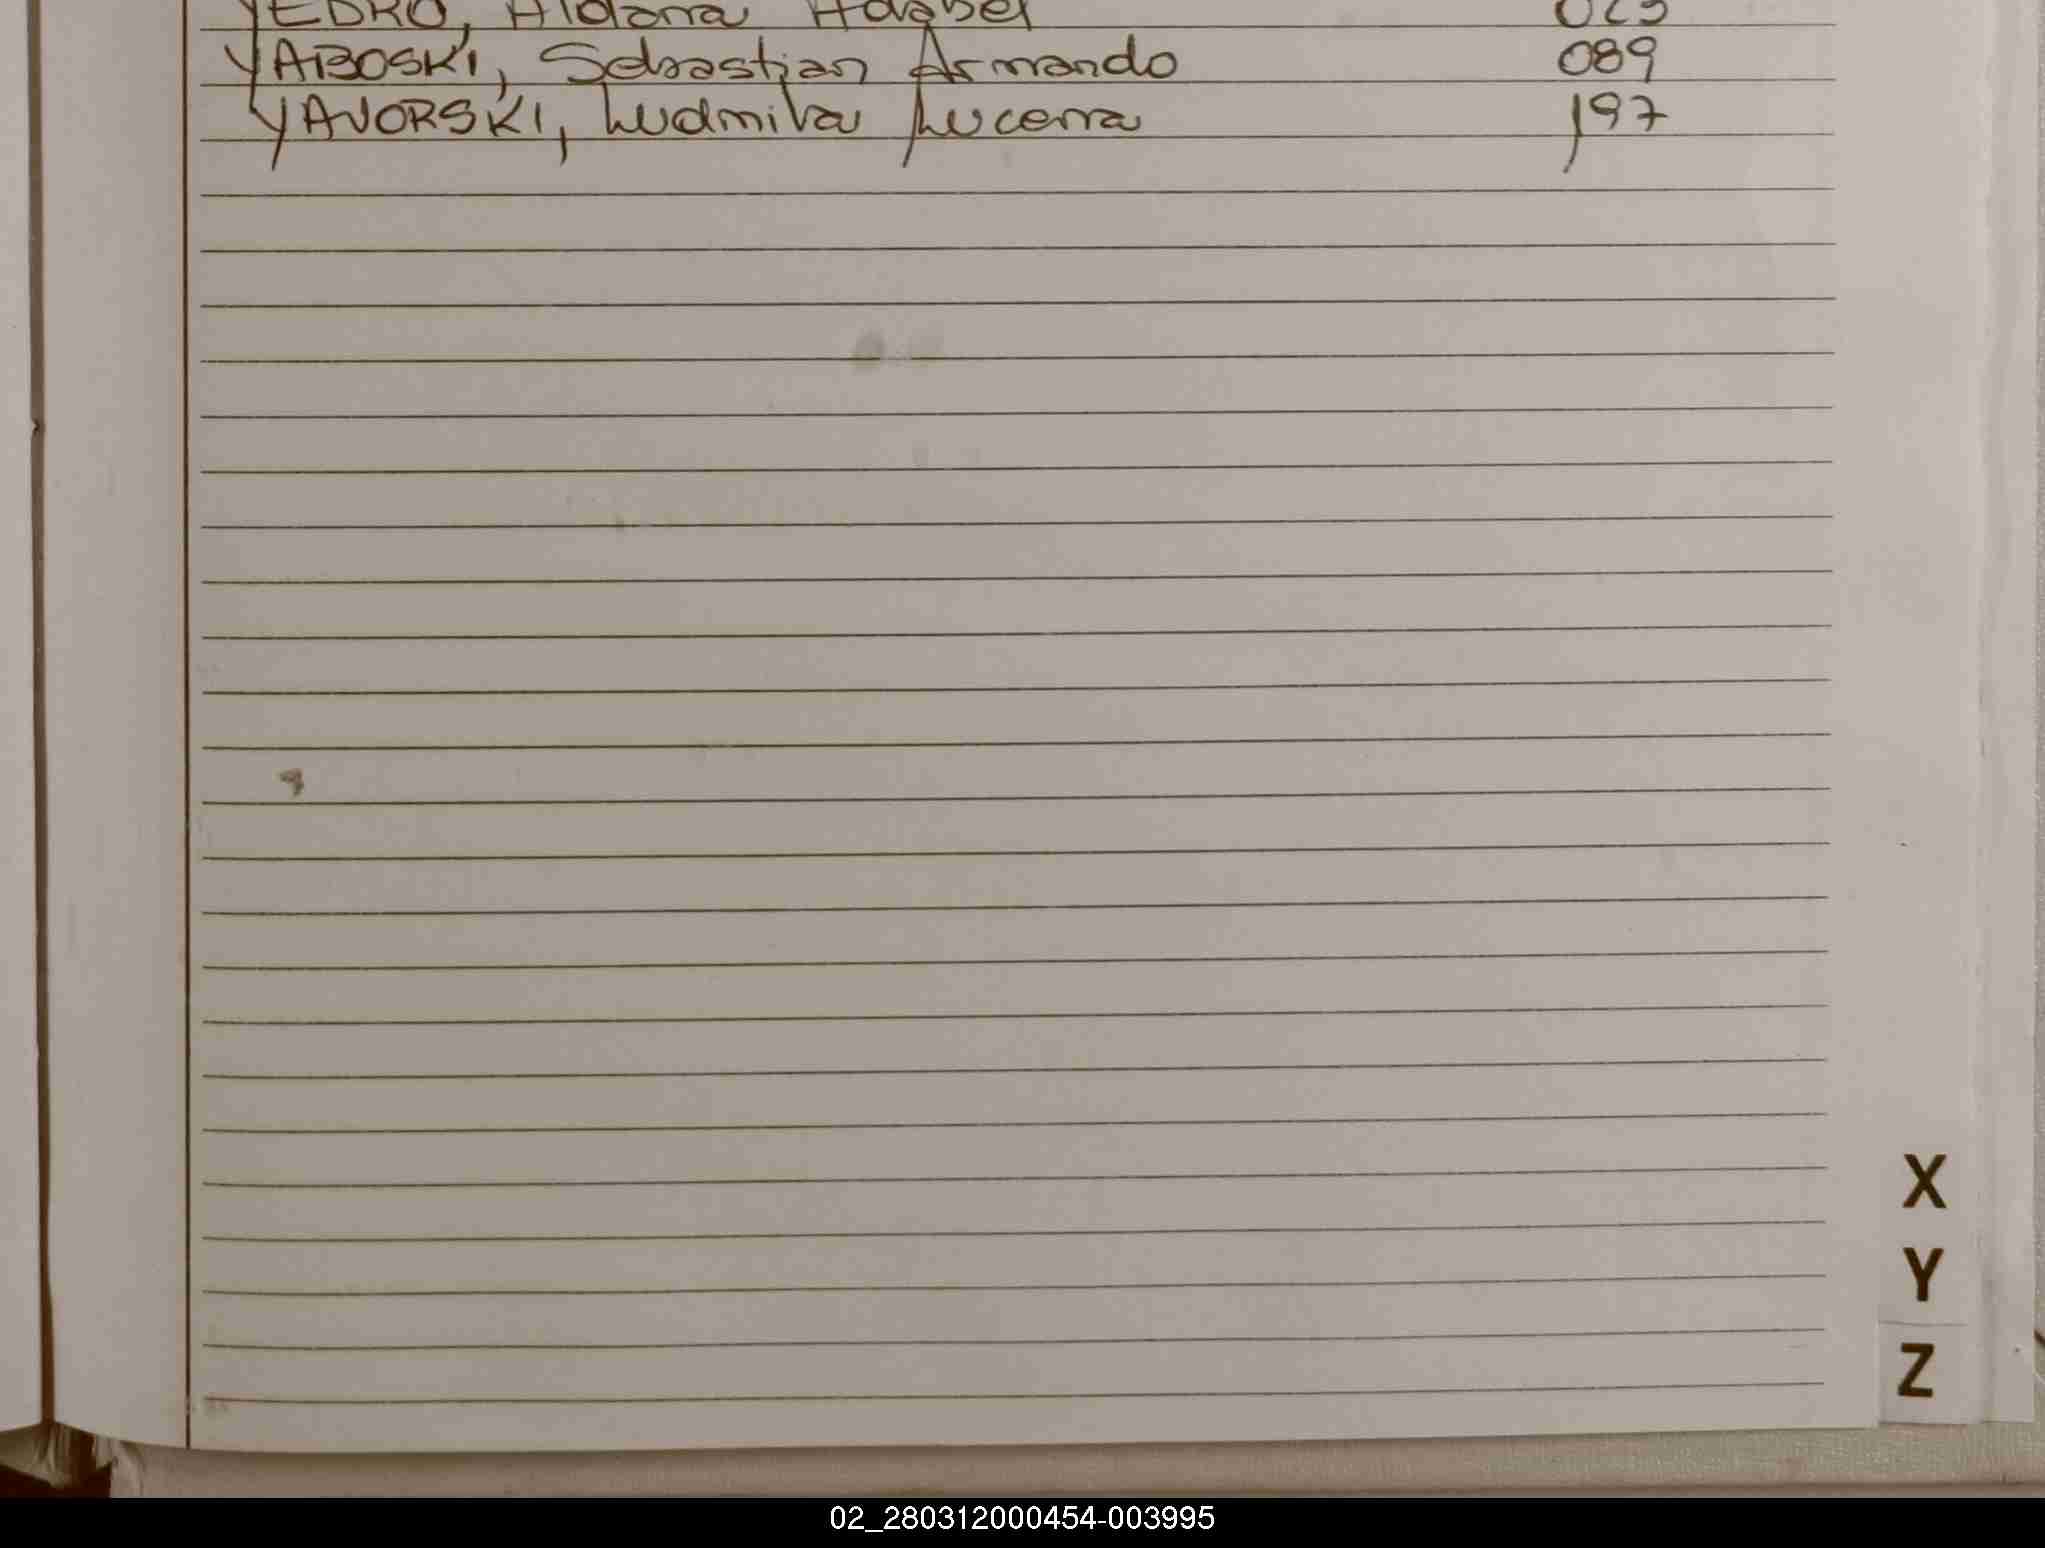 YEDRO, Aldana
YABOSKI, Sebastian Armando 089
YAVORSKI, Ludmila Lucena 197
X
Y
Z
02_280312000454-003995